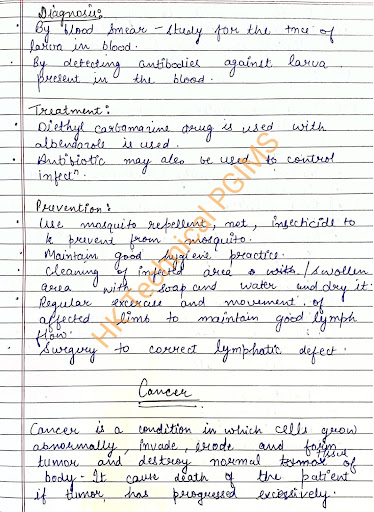 Diagnosis:
• By blood smear - study for the tnce of
larva in blood.
• By detecting antibodies against larva
present in the blood.
Treatment:
• Diethyl carbamazine drug is used with
albendazole is used.
• Antibiotic may also be used to control
infectⁿ.
Prevention:
• Use mosquito repellent, not, insecticide to
prevent from mosquito.
• Maintain good hygiene practice.
• Cleaning of infected area with / swollen
area with soap and water and dry it.
• Regular exercise and movement of
affected limb to maintain good lymph
flow.
• Surgery to correct lymphatic defect.
Cancer
Cancer is a condition in which cells grow
abnormally, invade, erode and form
tumor and destroy normal tissue of
body - It cause death of the patient
if tumor, has progressed excessively.
HK Technical PGIMS